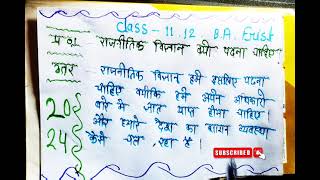 class - 11.12 B.A. First
प्र ०१ राजनीतिक विज्ञान क्यों पढना चाहिए
उत्तर राजनीतिक विज्ञान हमें इसलिए पढना
चाहिए क्योंकि हमें अपने अधिकारो
के बारे में ज्ञात प्राप्त होना चाहिए।
और हमारे देश का शासन व्यवस्था
कैसे चल रहा है।
2024
SUBSCRIBED